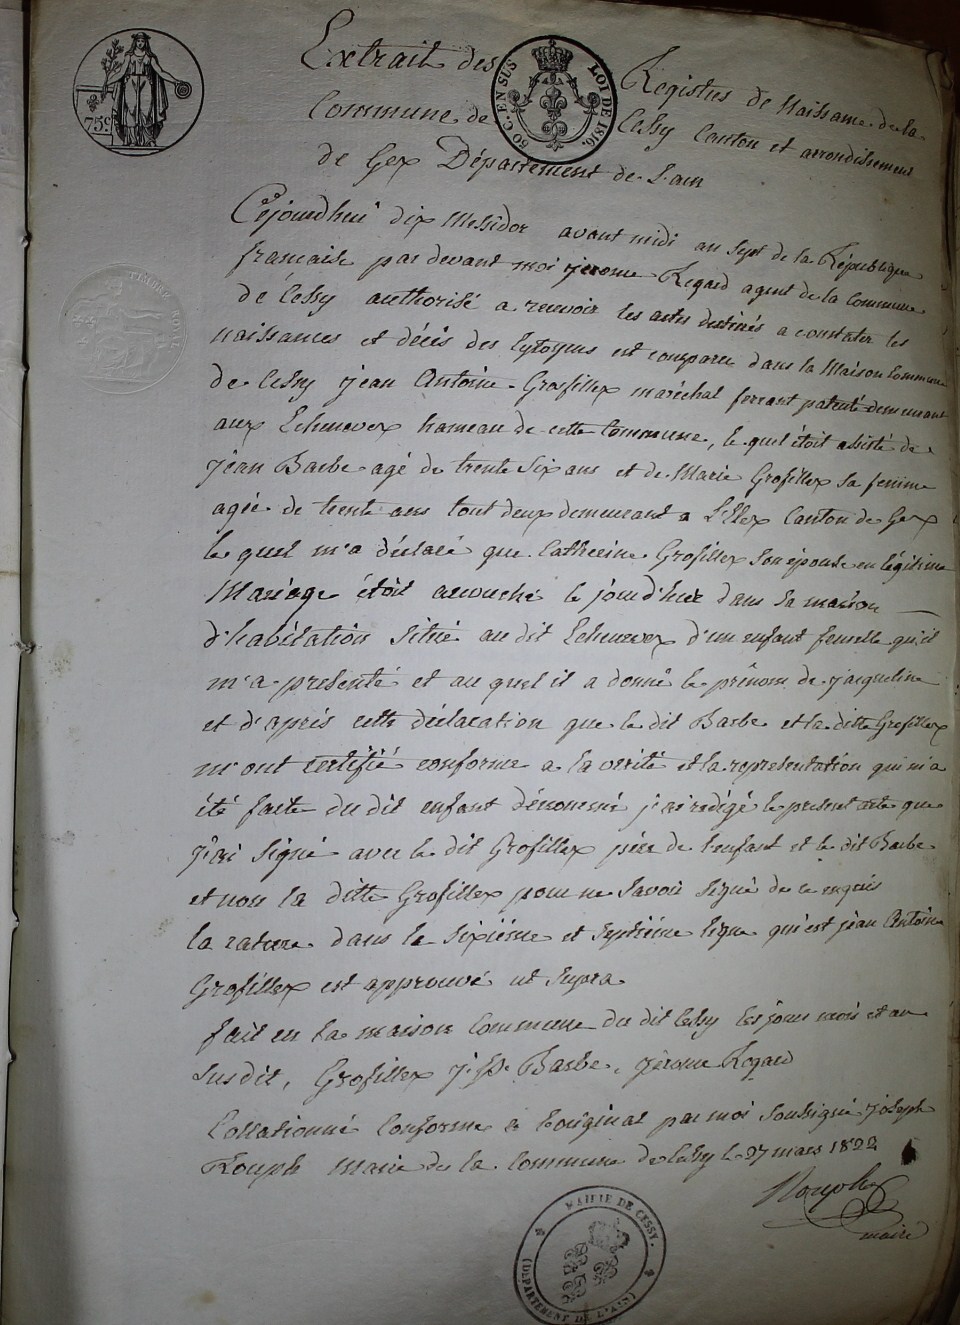 75c
50 C. EN SUS
LOI DE 1816.
Extrait des Registres de Naissance de la
Commune de Cessy Canton et arrondissement
de Gex Département de L'ain
TIMBRE ROYAL
Cejourdhui dix Messidor avant midi an Sept de la République
francaise par devant moi jerome Regard agent de la Commune
de Cessy authorisé a recevoir les actes destinés a constater les
naissances et décès des Cytoyens est comparu dans la Maison Commune
de Cessy jean Antoine Grosfillex maréchal ferrant patenté demeurant
aux Echenevex hameau de cette Commune, le quel étoit assisté de
jean Barbe agé de trente Six ans et de Marie Grofillex sa femme
agée de trente ans tout deux demeurant a Canton de Gex
le quel m'a déclaré que Catherine Grofillex Son épouse en légitime
Mariage étoit accouché le jourd'hui dans sa maison
d'habitation Situé au dit Echenevex d'un enfant femelle qu'il
m'a présenté et au quel il a donné le prénom de jacqueline
et d'après cette déclaration que le dit Barbe et la ditte Grofillex
m'ont certifié conforme a la vérité et la représentation qui m'a
été faite du dit enfant dénommé j'ai rédigé le présent acte que
j'ai Signé avec le dit Grofillex père de l'enfant et le dit Barbe
et non la ditte Grofillex pour ne Savoir Signé de ce enquis
la rature dans la Sixiéme et Septiéme ligne qu'est jean Antoine
Grofillex est approuvé ut Supra
fait en la maison Commune du dit Cessy les jours mois et an
Susdit, Grofillex Barbe, jérome Regard
Collationné Conforme a l'original par moi Soussigné joseph
Rouph Maire de la Commune de Cessy le 27 mars 1822
Rouph
maire
MAIRIE DE CESSY.
(DÉPARTEMENT DE L'AIN)